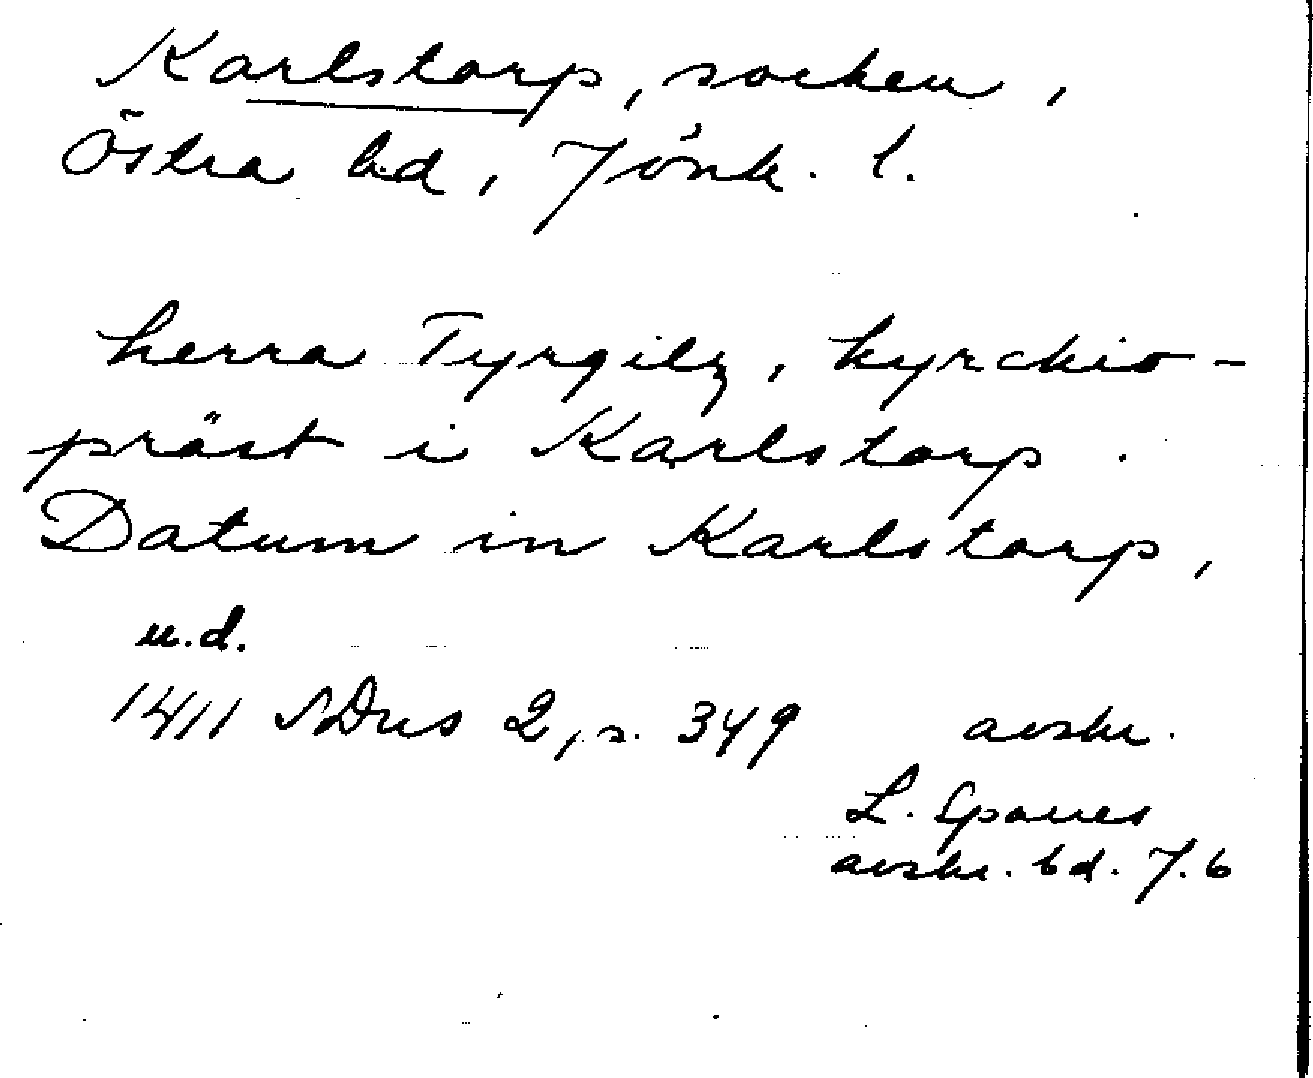 Karlstorp, socken,
Östra hd, Jönk. l.
herra Tyrgilz, kyrckio-
präst i Karlstorp.
Datum in Karlstorp,
u.d.
1411 SDns 2, s. 349 avskr.
L. Sparres
avskr. bd. 7.6